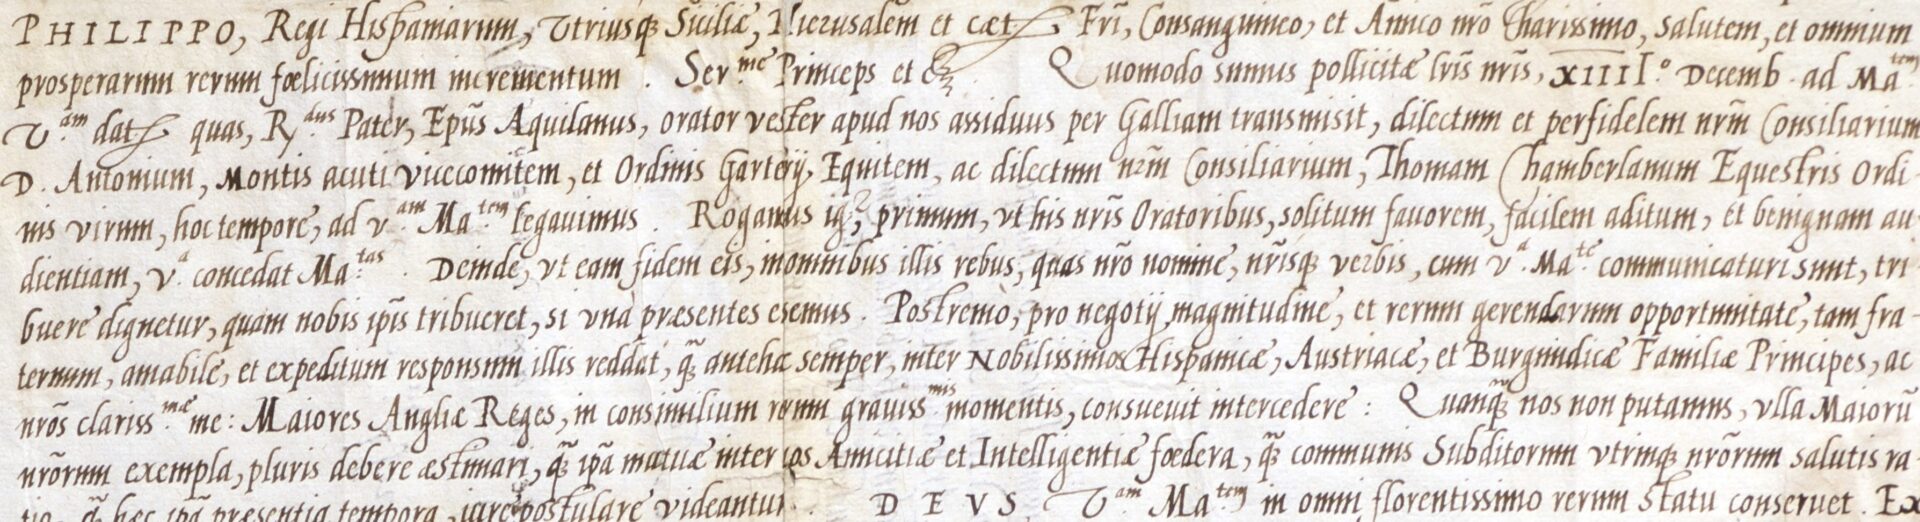 PHILIPPO, Regi Hispaniarum, Vtriusq̃ Siciliæ, Hierusalem et cæt Fri͂, Consanguineo, et Amico nr̃o Charissimo, Salutem, et omnium
prosperarum rerum fœlicissimum incrementum . Ser.me Princeps et &c. Quomodo sumus pollicitæ lr̃is nr̃is, XIIII.o Decemb. ad Ma.tem
V.am dat quas, R.dus Pater, Epũs Aquilanus, orator vester apud nos assiduus per Galliam transmisit, dilectum et perfidelem nr̃m Consiliarium
D. Antonium, Montis acuti vicecomitem, et Ordinis Garterij Equitem, ac dilectum nr̃m Consiliarium, Thomam Chamberlanum Equestris Ordi-
nis virum, hoc tempore, ad v.am Ma.tem legauimus . Rogamus ig.r, primum, vt his nr̃is Oratoribus, solitum fauorem, facilem aditum, et benignam au-
dientiam, v.a concedat Ma.tas . Deinde, vt eam fidem eis, in omnibus illis rebus, quas nr̃o nomine, nr̃isq̃ verbis, cum v.a Ma.te communicaturi sunt, tri-
buere dignetur, quam nobis ip̃is tribueret, si vna præsentes essemus . Postremò, pro negotij magnitudine, et rerum gerendarum opportunitate, tam fra-
ternum, amabile, et expeditum responsum illis reddat, q̃ antehac semper, inter Nobilissimos Hispanicæ, Austriacæ, et Burgundicæ Familiæ Principes, ac
nr̃os clariss.mæ me: Maiores Angliæ Reges, in consimilium rerum grauiss.mis momentis, consueuit intercedere : Quanq̃ nos non putamus, vlla Maiorũ
nr̃orum exempla, pluris debere æstimari, q̃ ip̃a mutuæ inter eos Amicitiæ et Intelligentiæ fœdera, q̃ communis Subditorum vtrinq̃ nr̃orum salutis ra-
tio, q̃ hæc ip̃a præsentia tempora, iure postulare videantur . DEVS V.am Ma.tem in omni florentissimo rerum statu conseruet . Ex